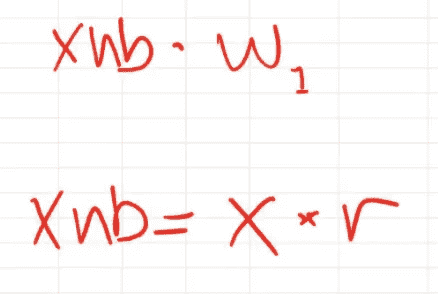 xnb · w₁
xnb = x * r